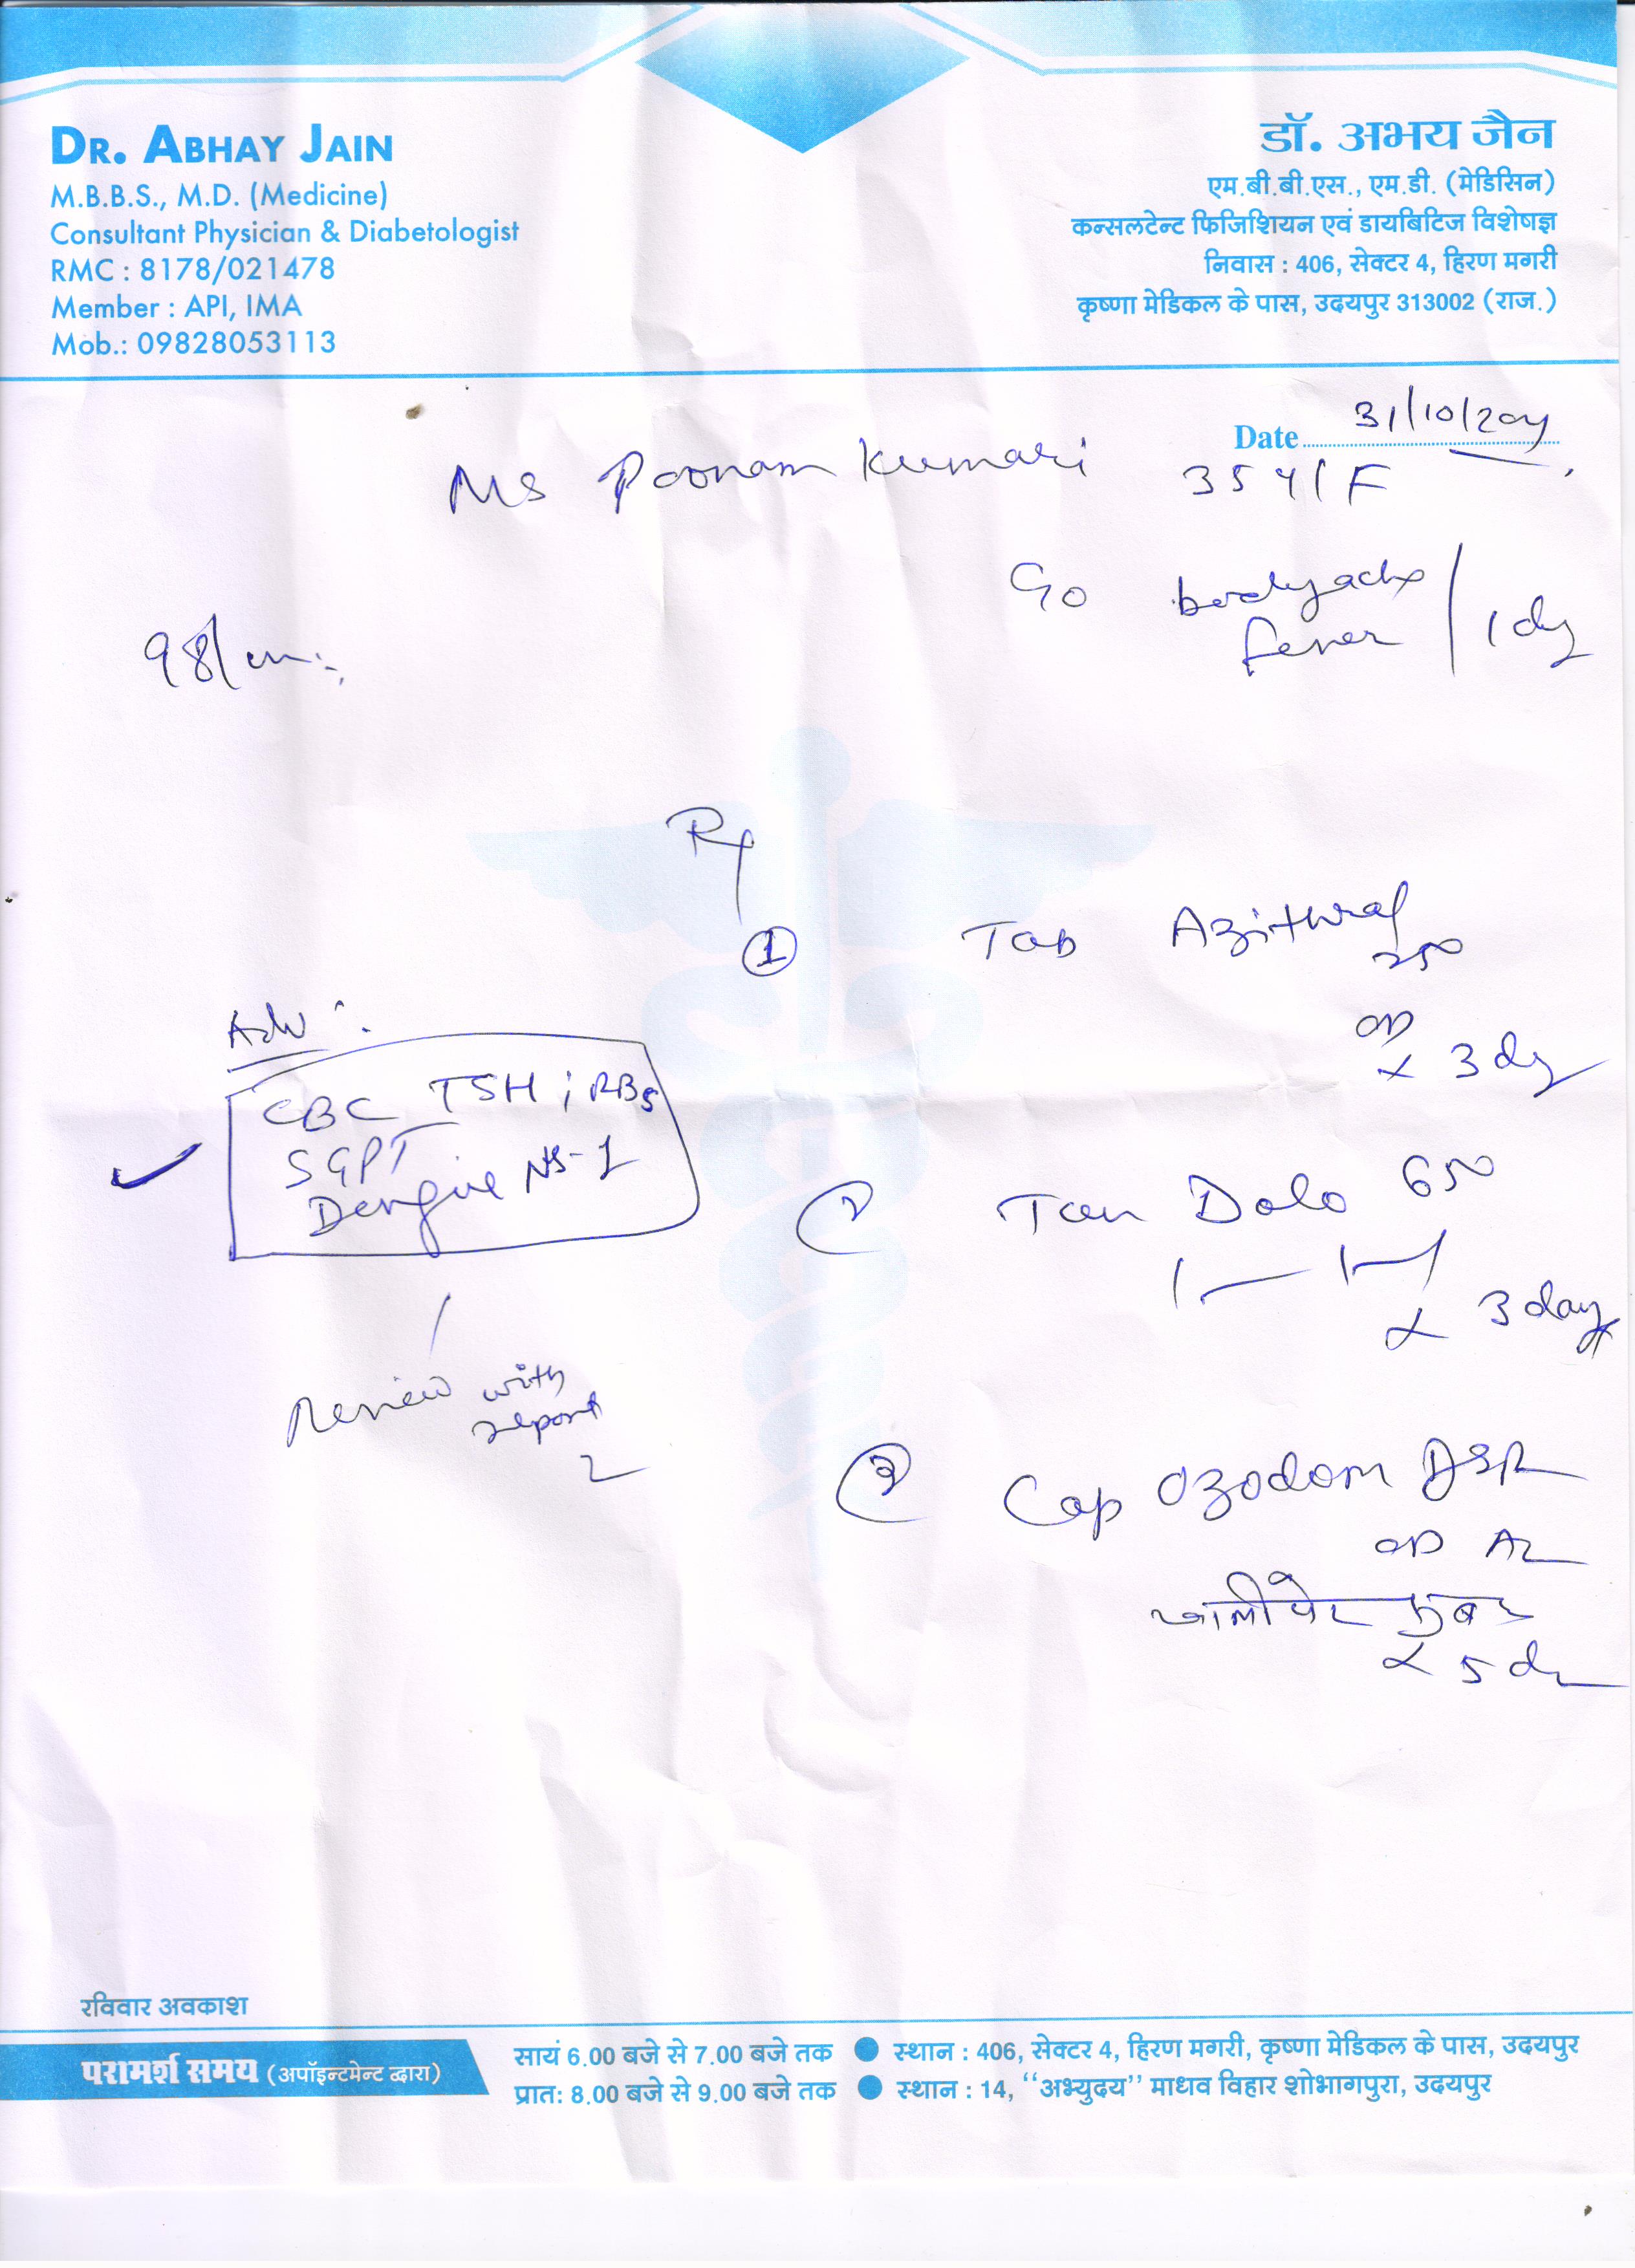 DR. ABHAY JAIN
M.B.B.S., M.D. (Medicine)
Consultant Physician & Diabetologist
RMC : 8178/021478
Member : API, IMA
Mob.: 09828053113
डॉ. अभय जैन
एम.बी.बी.एस., एम.डी. (मेडिसिन)
कन्सलटेन्ट फिजिशियन एवं डायबिटिज विशेषज्ञ
निवास : 406, सेक्टर 4, हिरण मगरी
कृष्णा मेडिकल के पास, उदयपुर 313002 (राज.)
Date 31/10/
Ms Poonam Kumari 35 y/F
C/o bodyache
fever / 1 dy
98/
Rx
① Tab Azithral
250
OD
x 3 dy
Adv :
CBC TSH ; RBS
SGPT
Dengue NS-1
② Tab Dolo 650
1-1-1
x 3 days
Review with
report
③ Cap Ozodom DSR
OD AC
खालीपेट सुबह
x 5 d
रविवार अवकाश
परामर्श समय (अपॉइन्टमेन्ट द्वारा)
सायं 6.00 बजे से 7.00 बजे तक ● स्थान : 406, सेक्टर 4, हिरण मगरी, कृष्णा मेडिकल के पास, उदयपुर
प्रात: 8.00 बजे से 9.00 बजे तक ● स्थान : 14, ‘‘अभ्युदय’’ माधव विहार शोभागपुरा, उदयपुर